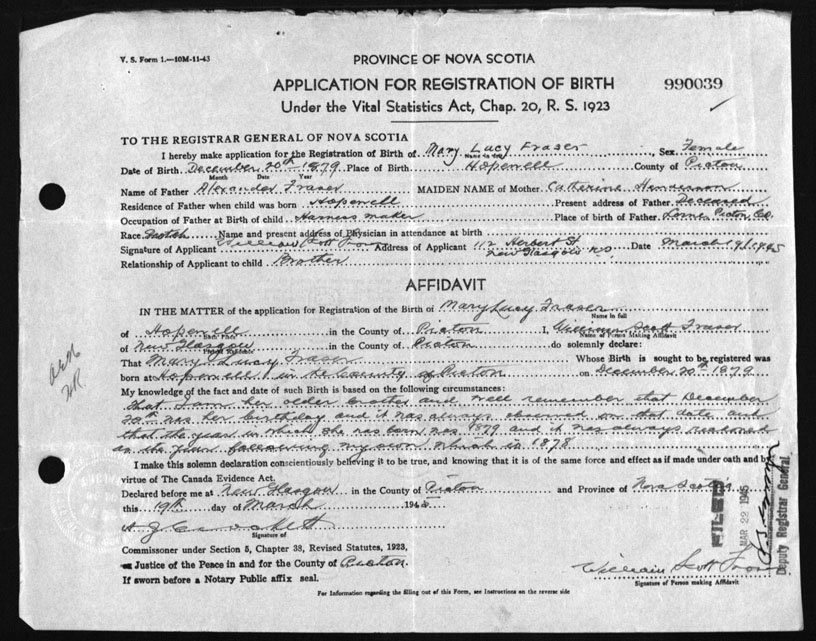 V. S. Form 1.—10M-11-43
PROVINCE OF NOVA SCOTIA
APPLICATION FOR REGISTRATION OF BIRTH
990039
Under the Vital Statistics Act, Chap. 20, R. S. 1923
TO THE REGISTRAR GENERAL OF NOVA SCOTIA
I hereby make application for the Registration of Birth of Mary Lucy Fraser, Sex Female
Name in full
Date of Birth December 20th 1879 Place of Birth Hopewell County of Picton
Month Date Year
Name of Father Alexander Fraser MAIDEN NAME of Mother Catherine
Residence of Father when child was born Hopewell Present address of Father Deceased
Occupation of Father at Birth of child Harness maker Place of birth of Father Lorne Picton Co.
Race Scotch Name and present address of Physician in attendance at birth
Signature of Applicant William Scott Fraser Address of Applicant 112 Herbert St. New Glasgow N.S. Date March 19/1945
Relationship of Applicant to child Brother
AFFIDAVIT
IN THE MATTER of the application for Registration of the Birth of Mary Lucy Fraser
Name in full
of Hopewell in the County of Picton I, William Scott Fraser
Birth Place Name of Person Making Affidavit
of New Glasgow in the County of Picton do solemnly declare:
Present Residence
That Mary Lucy Fraser Whose Birth is sought to be registered was
born at Hopewell in the County of Picton on December 20th 1879
My knowledge of the fact and date of such Birth is based on the following circumstances:
That I am her older brother and well remember that December
20th was her birthday and it was always observed on that date and
that the year in which she was born was 1879 and it was always reckoned
as the year following my own which is 1878
I make this solemn declaration conscientiously believing it to be true, and knowing that it is of the same force and effect as if made under oath and by
virtue of The Canada Evidence Act.
Declared before me at New Glasgow in the County of Picton and Province of Nova Scotia
this 19th day of March 1945
Signature of
Commissoner under Section 5, Chapter 38, Revised Statutes, 1923,
Justice of the Peace in and for the County of Picton
If sworn before a Notary Public affix seal.
William Scott Fraser
Signature of Person making Affidavit
For Information regarding the filling out of this Form, see Instructions on the reverse side
FILED
MAR 22 1945
Deputy Registrar General